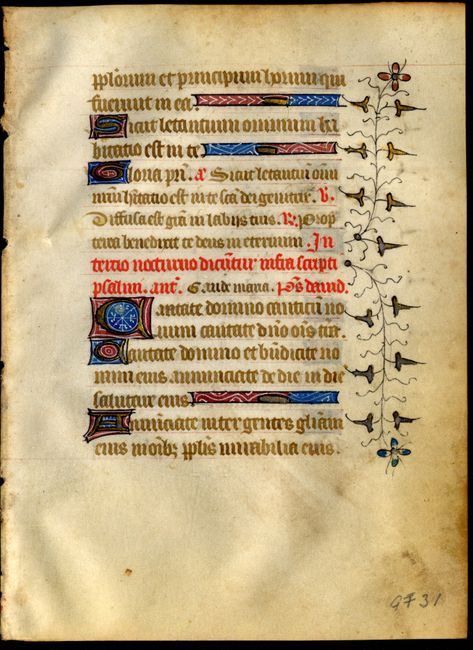 pplorum et principium horum qui
fuerunt in ea.
Sicut letantium omnium ha
bitatio est in te
Gloria pri. a Sicut letantiu omni
um hitatio est in te sca dei genitrix. V.
Diffusa est gra in labijs tuis. R. Prop
terea benedixit te deus in eternum. In
tercio nocturno dicuntur infra scripti
psalmi. ant. Gaude maria. Ps david.
Cantate domino canticum no
uum cantate dno ois tra.
Cantate domino et budicite no
mini eius annunciate de die in die
salutare eius
Annunciate inter gentes gliam
eius in oibz pplis mirabilia eius.
9731